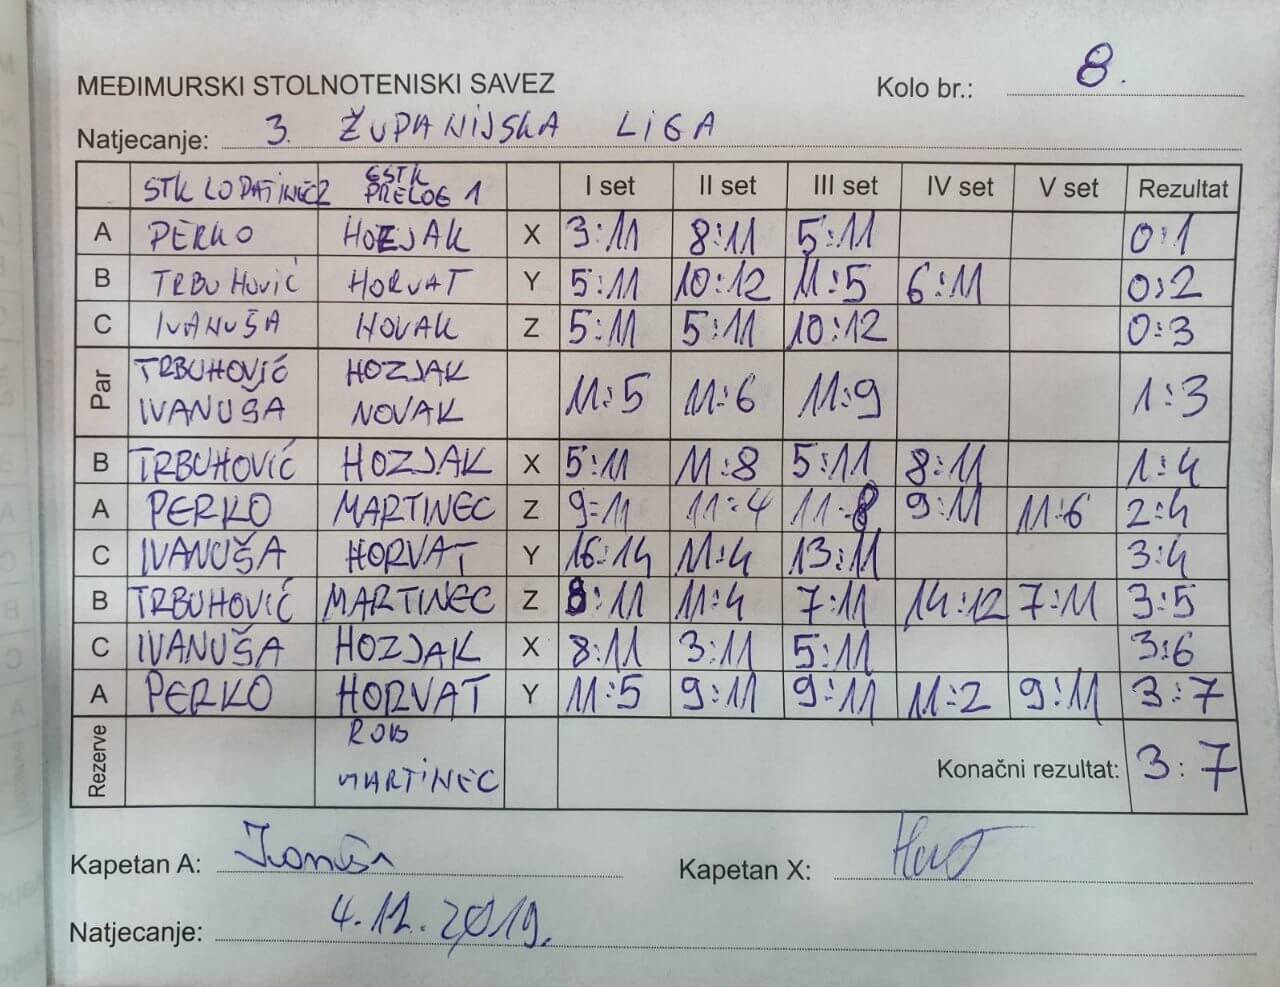 MEĐIMURSKI STOLNOTENISKI SAVEZ
Kolo br.: 8.
Natjecanje: 3. ŽUPANIJSKA LIGA
STK LOPATINEC 2 SSTK PRELOG 1 I set II set III set IV set V set Rezultat
A PERKO HOZJAK X 3:11 8:11 5:11 0:1
B TRBUHOVIĆ HORVAT Y 5:11 10:12 11:5 6:11 0:2
C IVANUŠA NOVAK Z 5:11 5:11 10:12 0:3
Par TRBUHOVIĆ IVANUŠA HOZJAK NOVAK 11:5 11:6 11:9 1:3
B TRBUHOVIĆ HOZJAK X 5:11 11:8 5:11 8:11 1:4
A PERKO MARTINEC Z 9:11 11:4 11:8 9:11 11:6 2:4
C IVANUŠA HORVAT Y 16:14 11:4 13:11 3:4
B TRBUHOVIĆ MARTINEC Z 8:11 11:4 7:11 14:12 7:11 3:5
C IVANUŠA HOZJAK X 8:11 3:11 5:11 3:6
A PERKO HORVAT Y 11:5 9:11 9:11 11:2 9:11 3:7
Rezerve ROB MARTINEC Konačni rezultat: 3:7
Kapetan A: Ivanuša
Kapetan X:
Natjecanje: 4.12.2019.